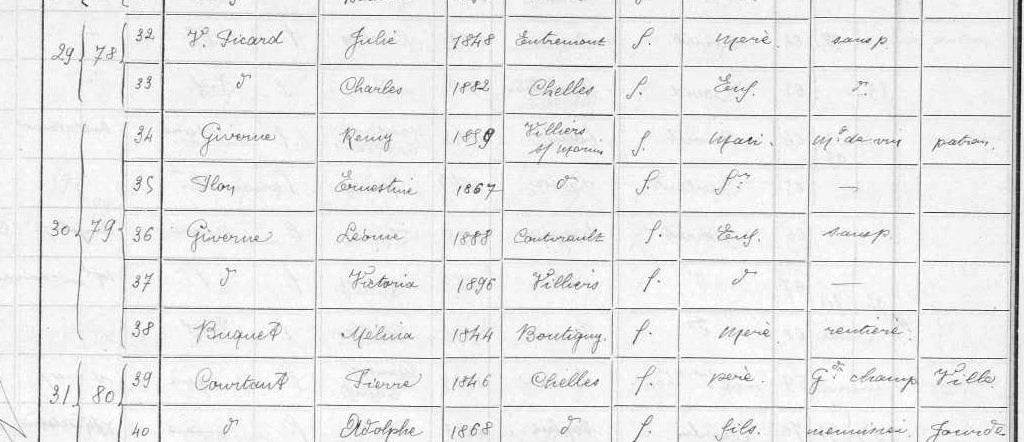 29 78 32 Vᵉ Picard Julie 1848 Entremont f. mère sans p.
33 d° Charles 1882 Chelles f. Enf. d°
34 Giverne Remy 1859 Villiers s/ Morin f. Mari. mᵈ de vin patron.
35 Ernestine 1867 d° f. fᵉ —
30 79 36 Giverne Léonie 1888 f. Enf. sans p.
37 d° Victoria 1896 Villiers f. d° —
38 Buquet Mélina 1844 Boutigny. f. mère rentière.
31 80 39 Courtaut Pierre 1846 Chelles f. père. Gᵈᵉ champ Ville
40 d° Adolphe 1868 d° f. fils.